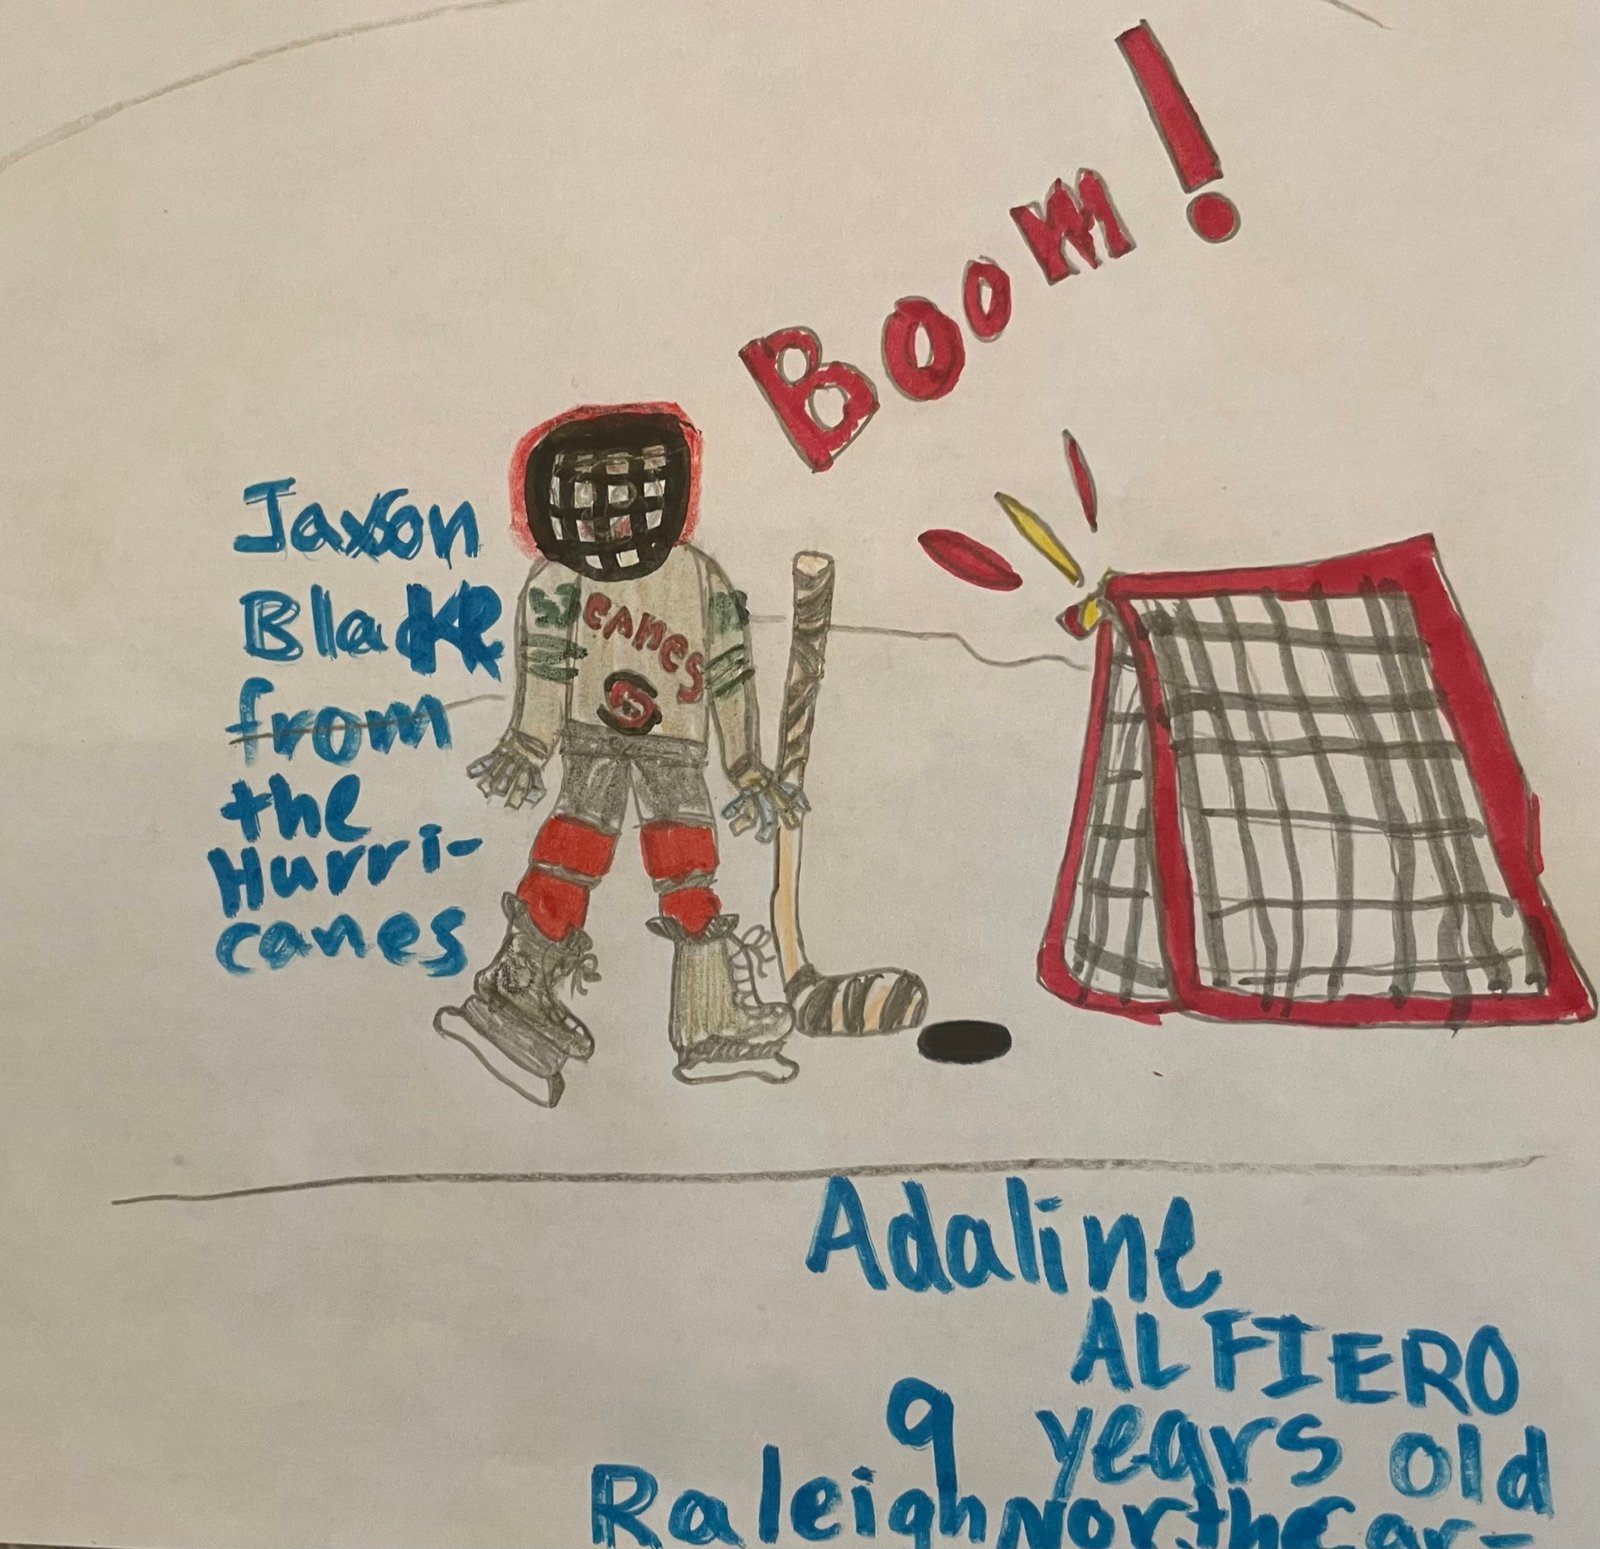 Boom!
Jaxson
Blake
from
the
Hurri-
canes
CANES
Adaline
ALFIERO
9 years old
Raleigh North Car-